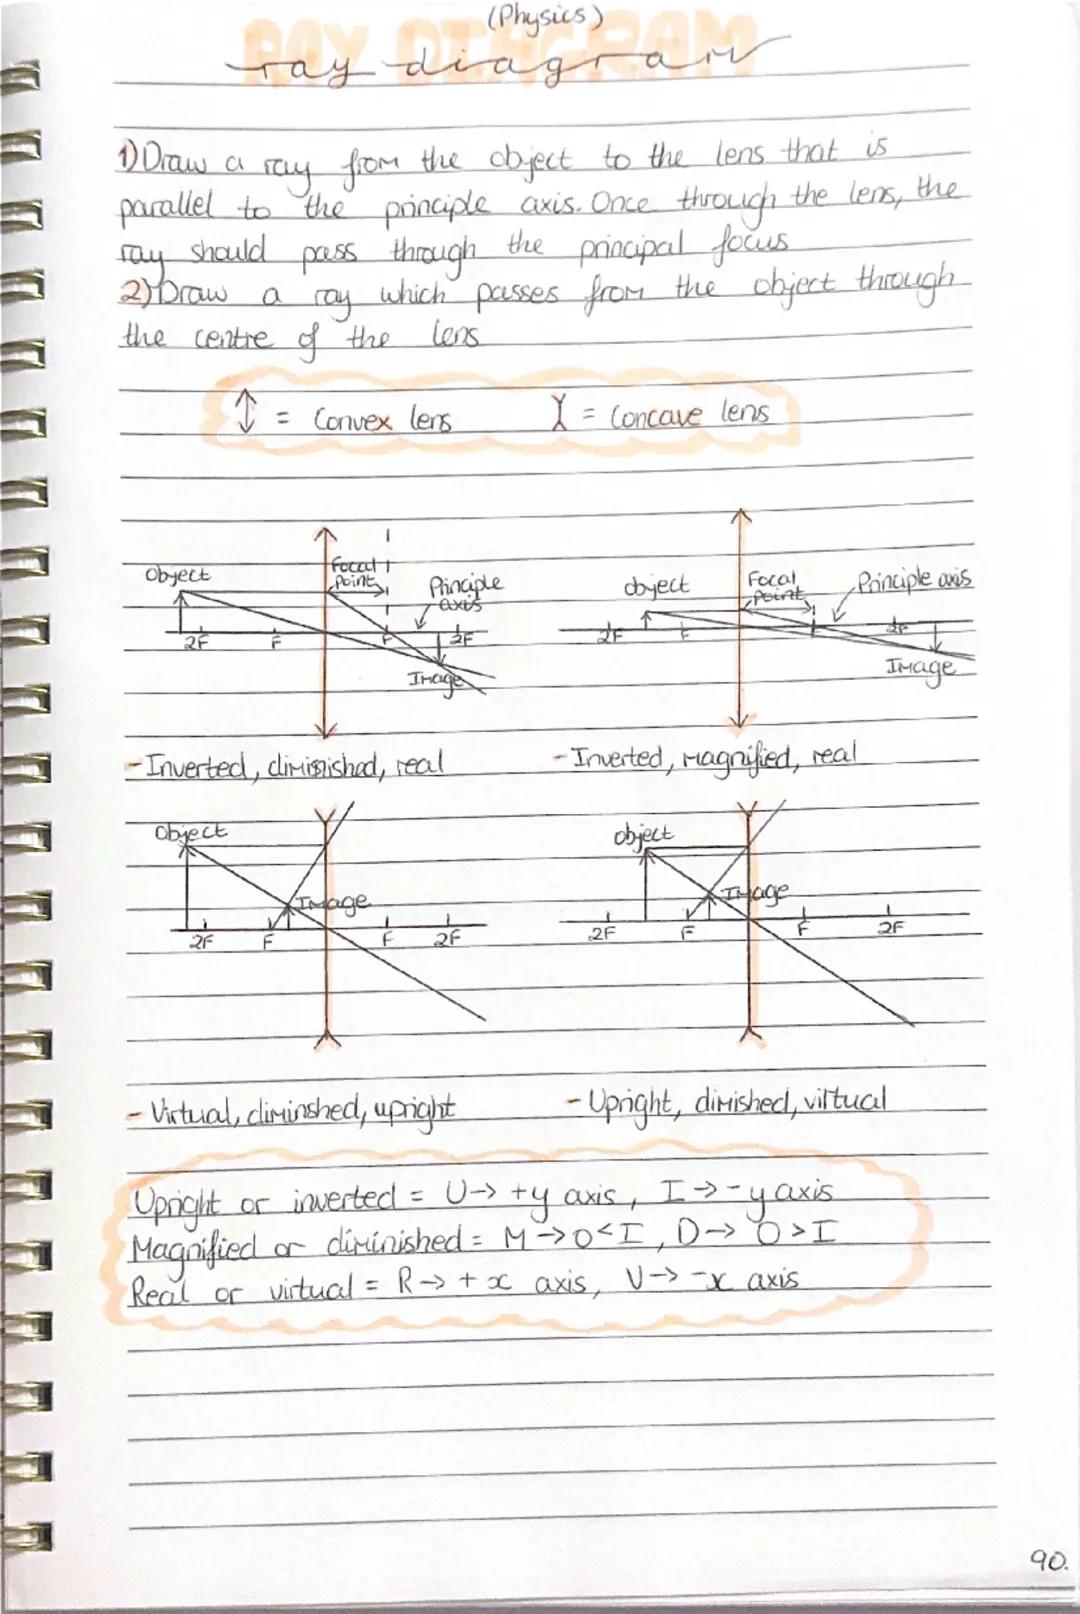 (Physics)
RAY DIAGRAM
ray diagram
1) Draw a ray from the object to the lens that is
parallel to the principle axis. Once through the lens, the
ray should pass through the principal focus
2) Draw a ray which passes from the object through
the centre of the lens
↕ = Convex lens
= Concave lens
Object
Focal Point
Principle axis
2F F F 2F
Image
object
Focal point
Principle axis
2F F F 2F
Image
- Inverted, diminished, real
- Inverted, magnified, real
object
Image
2F F F 2F
object
Image
2F F F 2F
- Virtual, diminshed, upright
- Upright, dimished, viltual
Upright or inverted = U → +y axis, I → -y axis
Magnified or diminished = M → O < I, D → O > I
Real or virtual = R → + x axis, V → -x axis
90.